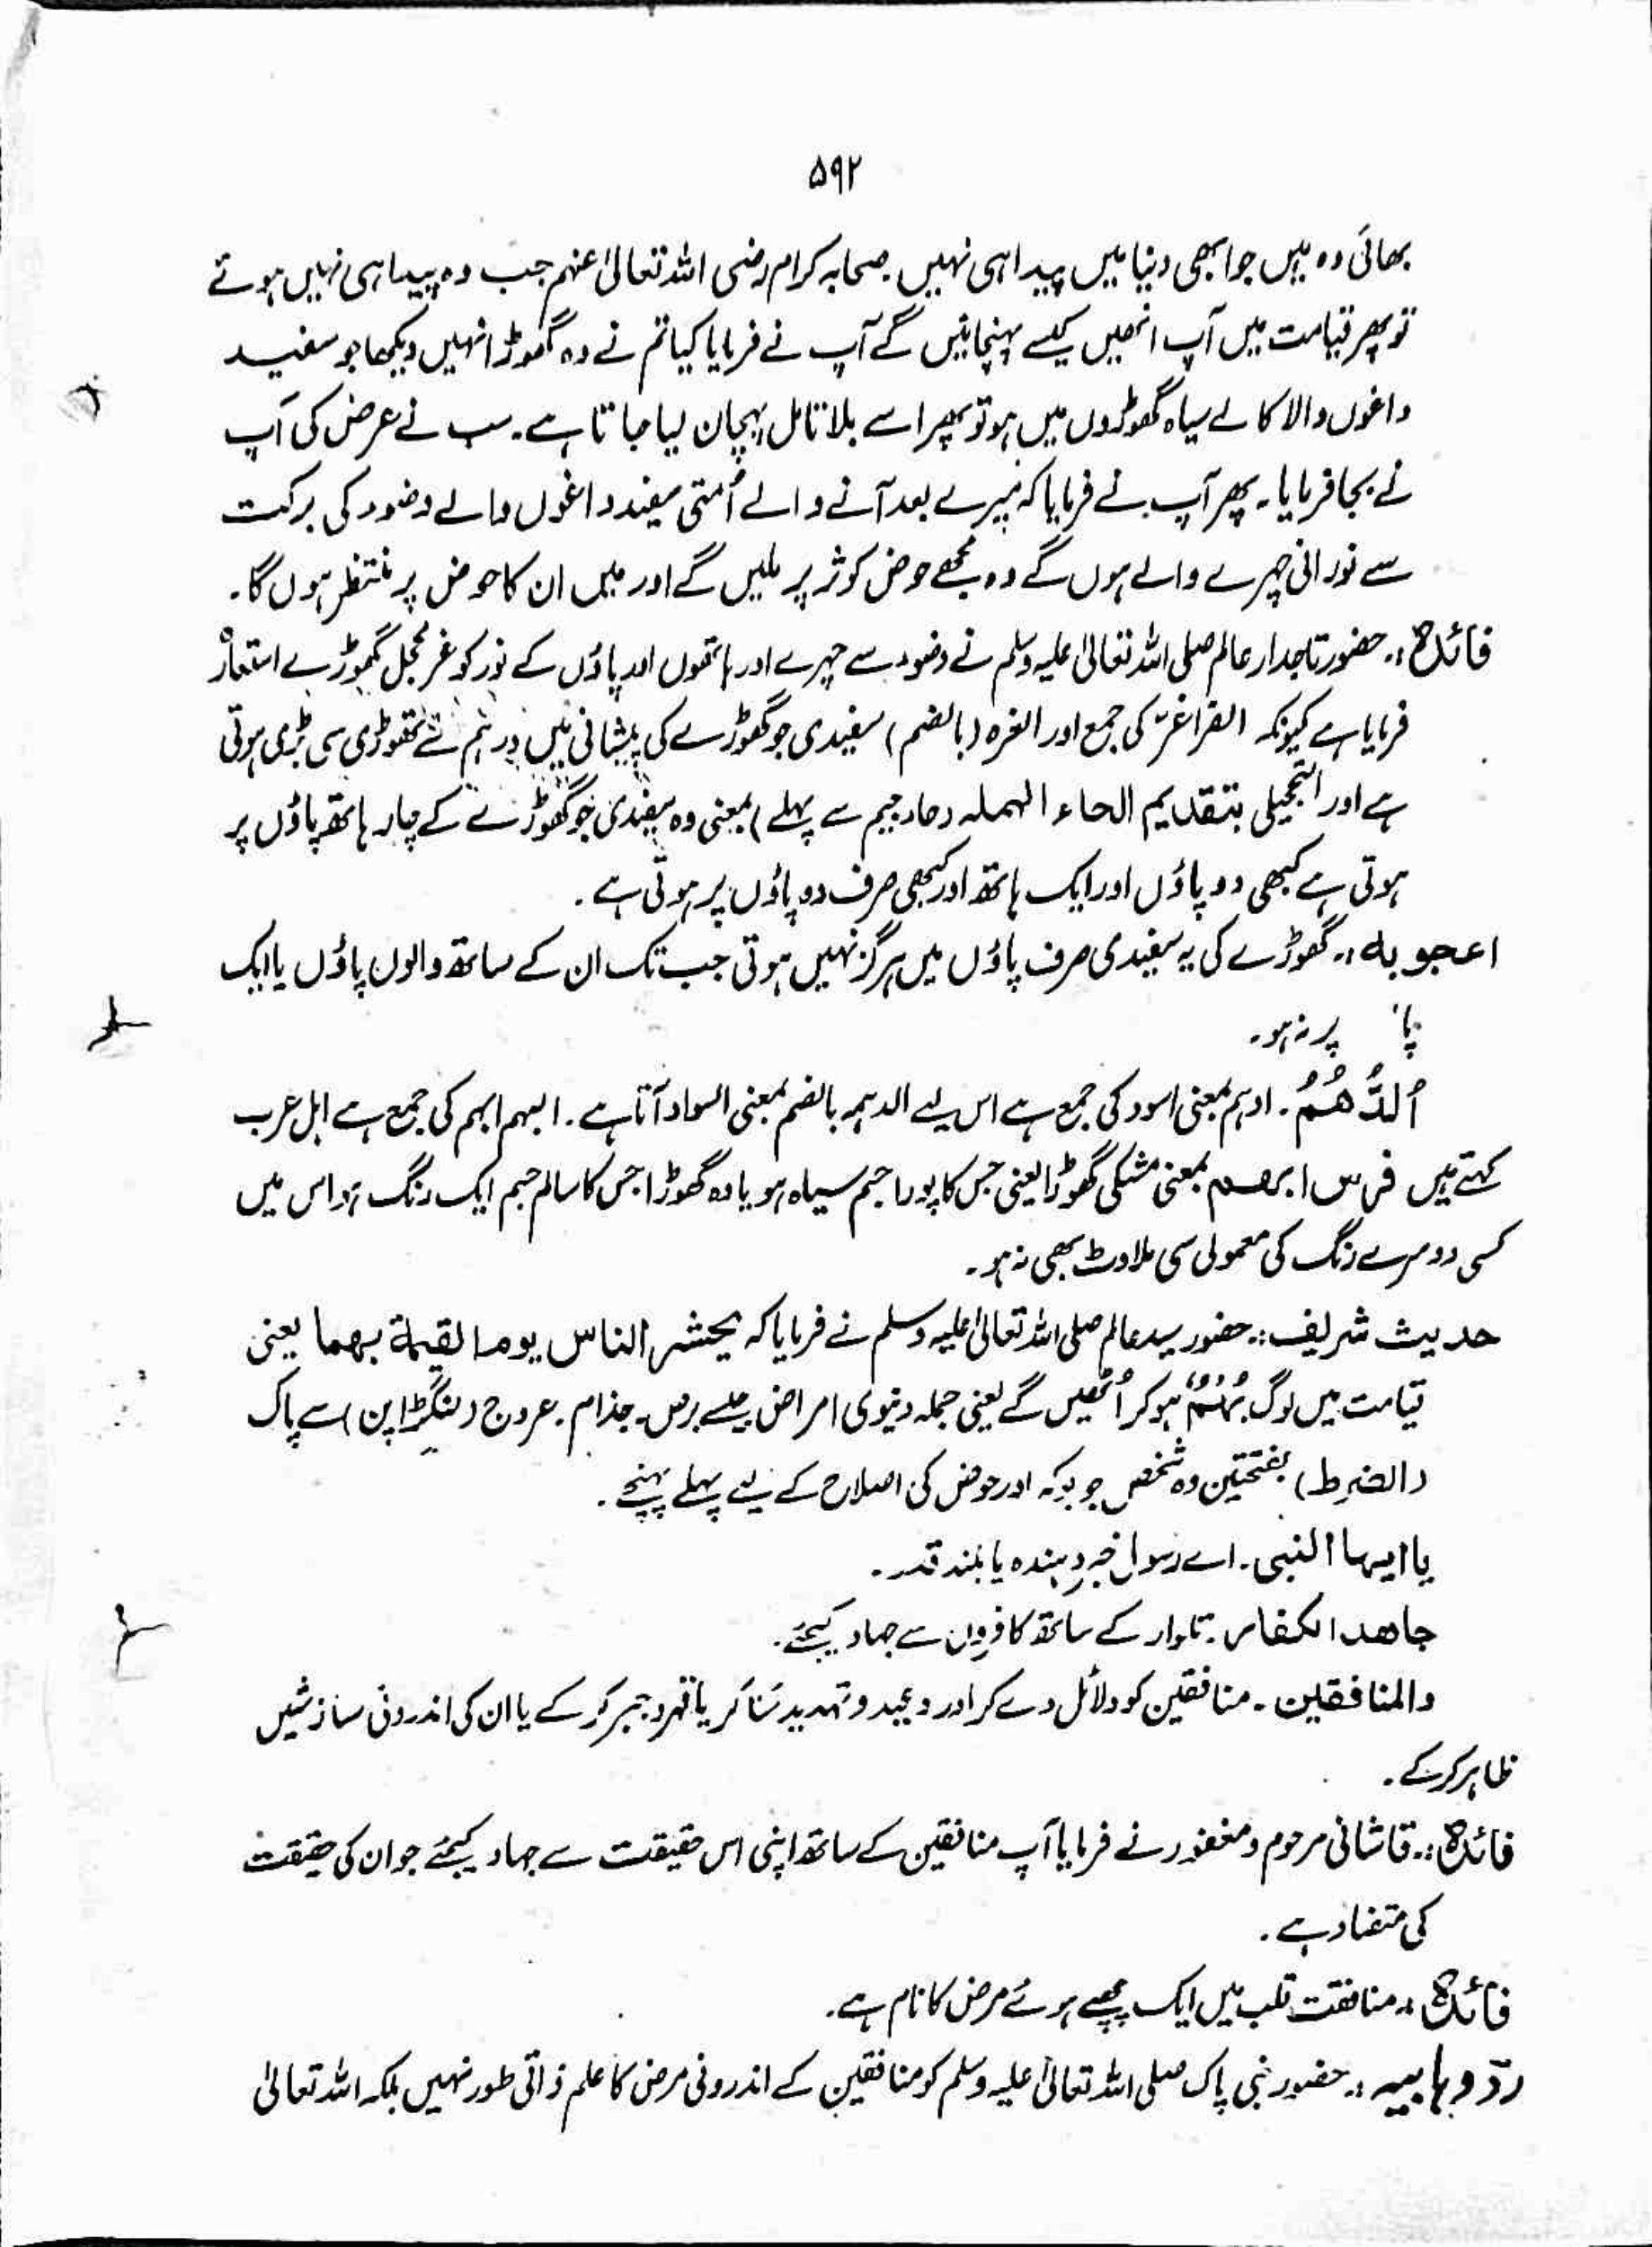 ۵۹۲
بھائی وہ ہیں جو ابھی دنیا میں پیدا ہی نہیں۔ صحابہ کرام رضی اللہ تعالیٰ عنہم جب وہ پیدا ہی نہیں ہوئے
تو پھر قیامت میں آپ انھیں کیسے پہنچانیں گے آپ نے فرمایا کیا تم نے وہ گھوڑا نہیں دیکھا جو سفید
داغوں والا کالے سیاہ گھوڑوں میں ہو تو پھر اسے بلا تامل پہچان لیا جاتا ہے۔ سب نے عرض کی آپ
نے بجا فرمایا۔ پھر آپ نے فرمایا کہ میرے بعد آنے والے اُمتی سفید داغوں والے وضوء کی برکت
سے نورانی چہرے والے ہوں گے وہ مجھے حوض کوثر پر ملیں گے اور میں ان کا حوض پر منتظر ہوں گا۔
فائدہ :۔ حضور تاجدار عالم صلی اللہ تعالیٰ علیہ وسلم نے وضوء سے چہرے اور ہاتھوں اور پاؤں کے نور کو غر محجل گھوڑے استعارۃً
فرمایا ہے کیونکہ الغر اغرّ کی جمع اور الغرہ (بالضم) سفیدی جو گھوڑے کی پیشانی میں درہم سے تھوڑی سی بڑی ہوتی
ہے اور التحجیل بتقدیم الحاء المہملہ (حاء جیم سے پہلے) بمعنی وہ سفیدی جو گھوڑے کے چار ہاتھ پاؤں پر
ہوتی ہے کبھی دو پاؤں اور ایک ہاتھ اور کبھی صرف دو پاؤں پر ہوتی ہے۔
اعجوبہ :۔ گھوڑے کی یہ سفیدی صرف پاؤں میں ہرگز نہیں ہوتی جب تک ان کے ساتھ والوں پاؤں یا ایک
پا پر نہ ہو۔
اُلدُّهُمُ۔ ادہم بمعنی اسود کی جمع ہے اس لیے الدہمہ بالضم بمعنی السواد آتا ہے۔ البہم ابہم کی جمع ہے اہل عرب
کہتے ہیں فرس ابھم بمعنی مشکی گھوڑا یعنی جس کا پورا جسم سیاہ ہو یا وہ گھوڑا جس کا سالم جسم ایک رنگ ہو اس میں
کسی دوسرے رنگ کی معمولی سی ملاوٹ بھی نہ ہو۔
حدیث شریف :۔ حضور سید عالم صلی اللہ تعالیٰ علیہ وسلم نے فرمایا کہ یحشر الناس یوم القیٰمۃ بھما یعنی
قیامت میں لوگ بُہُمٌ ہو کر اُٹھیں گے یعنی جملہ دنیوی امراض جیسے برص۔ جذام۔ عروج (لنگڑا پن) سے پاک
(الضرط) بفتحتین وہ شخص جو بوکہ اور حوض کی اصلاح کے لیے پہلے پہنچے۔
یا ایہا النبی۔ اے رسول خبر دہندہ یا بلند قدر۔
جاھد الکفار۔ تلوار کے ساتھ کافروں سے جہاد کیجئے۔
والمنافقین۔ منافقین کو دلائل دے کر اور وعید و تہدید سُنا کر یا قہر و جبر کر کے یا ان کی اندرونی سازشیں
ظاہر کرکے۔
فائدہ :۔ قاشانی مرحوم و مغفور نے فرمایا آپ منافقین کے ساتھ اپنی اس حقیقت سے جہاد کیجئے جو ان کی حقیقت
کی متضاد ہے۔
فائدہ :۔ منافقت قلب میں ایک چھپے ہوئے مرض کا نام ہے۔
ردّ وہابیہ :۔ حضور نبی پاک صلی اللہ تعالیٰ علیہ وسلم کو منافقین کے اندرونی مرض کا علم ذاتی طور نہیں بلکہ اللہ تعالیٰ